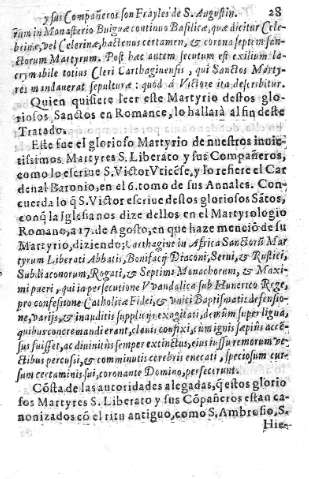 y sus Compañeros son Frayles de S. Augustin. 28
rum in Monasterio Buignæ continuo Basilicæ, quæ dicitur Cele-
brinæ, vel Celerinæ, hactenus certamen, & corona septem san-
ctorum Martyrum. Post hæc autem secutum est exilium la-
crymabile totius Cleri Carthaginensis, qui Sanctos Marty-
res mandauerat sepulturæ: quòd à Victore ita describitur.
Quien quisiere leer este Martyrio destos glo-
riosos Sanctos en Romance, lo hallarà al fin deste
Tratado.
Este fue el glorioso Martyrio de nuestros inuic-
tissimos Martyres S. Liberato y sus Compañeros,
como lo escriue S. Victor Vticēse, y lo refiere el Car
denal Baronio, en el 6. tomo de sus Annales. Con-
cuerda lo q̃ S. Victor escriue destos gloriosos Sātos,
conq̃ la Iglesia nos dize dellos en el Martyrologio
Romano, a 17. de Agosto, en que haze menciō de su
Martyrio, diziendo; Carthagine in Africa Sanctorū Mar
tyrum Liberati Abbatis, Bonifacij Diaconi, Serui, & Rustici,
Subdiaconorum, Rogati, & Septimi Monachorum, & Maxi
mi pueri, qui in persecutione VVandalica sub Hunerico Rege,
pro confessione Catholicæ Fidei, & vnici Baptismatis defensio-
ne, varijs, & inauditis supplicijs exagitati, demùm super ligna,
quibus concremandi erant, clauis confixi, cùm ignis sæpiùs accen
sus fuisset, ac diuinitùs semper extinctus, eius iussu remorum ve-
ctibus percussi, & comminutis cerebris enecati, speciosum cur-
sum certaminis sui, coronante Domino, perfecerunt.
Cōsta de las autoridades alegadas, q̃ estos glorio
sos Martyres S. Liberato y sus Cōpañeros estan ca-
nonizados cō el ritu antiguo, como S. Ambrosio, S.
Hie-